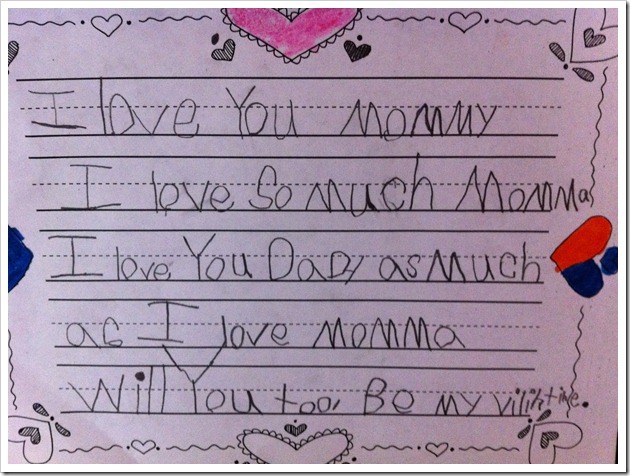 I love You Mommy
I love So much Momma
I love You Dady as Much
as I love Momma
Will You too, Be My vilintine.